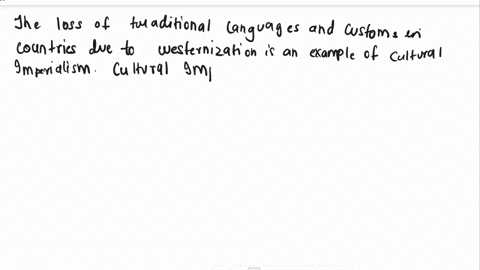 The loss of traditional languages and customs in
countries due to westernization is an example of cultural
Imperialism. Cultural Imp